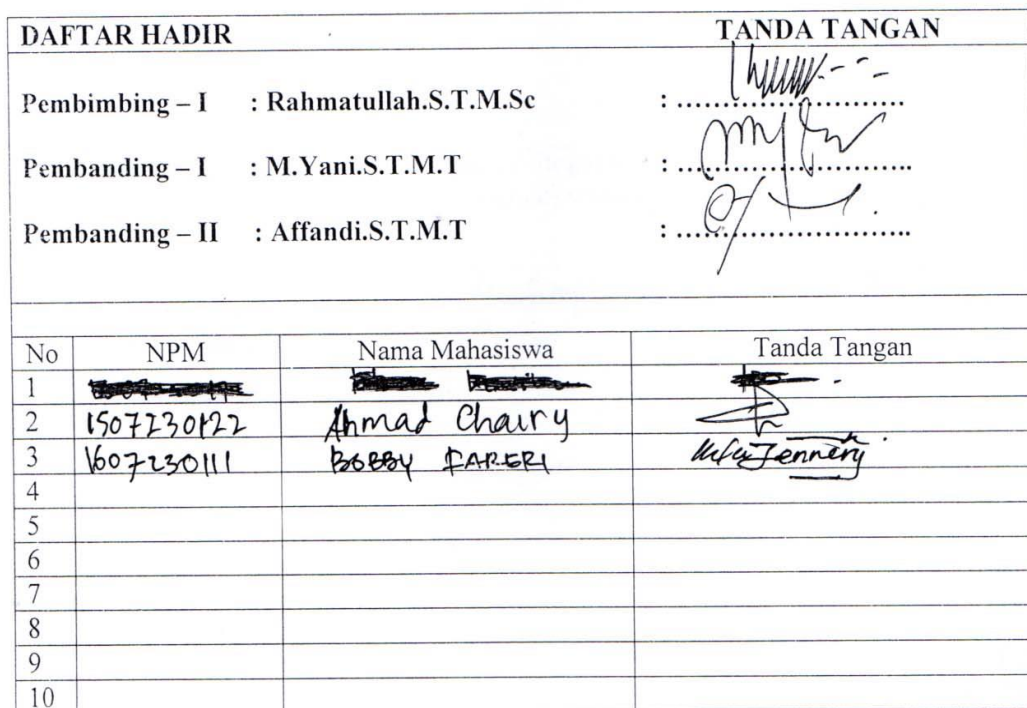 DAFTAR HADIR TANDA TANGAN
Pembimbing – I : Rahmatullah.S.T.M.Sc : ..............................
Pembanding – I : M.Yani.S.T.M.T : ..............................
Pembanding – II : Affandi.S.T.M.T : ..............................
No NPM Nama Mahasiswa Tanda Tangan
1
2 1507230122 Ahmad Chairy
3 1607230111 BOBBY
4
5
6
7
8
9
10